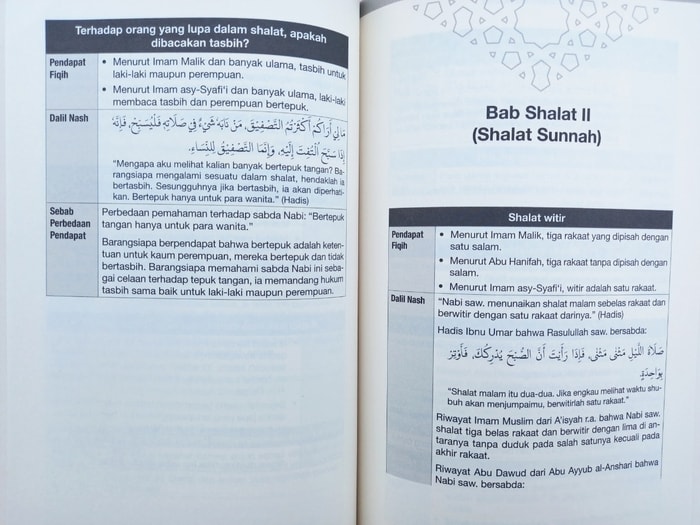 Terhadap orang yang lupa dalam shalat, apakah
dibacakan tasbih?
Pendapat
Fiqih
• Menurut Imam Malik dan banyak ulama, tasbih untuk
laki-laki maupun perempuan.
• Menurut Imam asy-Syafi'i dan banyak ulama, laki-laki
membaca tasbih dan perempuan bertepuk.
Dalil Nash
مَالِي أَرَاكُمْ أَكْثَرْتُمُ التَّصْفِيْقَ، مَنْ نَابَهُ شَيْءٌ فِي صَلَاتِهِ فَلْيُسَبِّحْ، فَإِنَّهُ
إِذَا سَبَّحَ الْتُفِتَ إِلَيْهِ، وَإِنَّمَا التَّصْفِيْقُ لِلنِّسَاءِ.
"Mengapa aku melihat kalian banyak bertepuk tangan? Ba-
rangsiapa mengalami sesuatu dalam shalat, hendaklah ia
bertasbih. Sesungguhnya jika bertasbih, ia akan diperhati-
kan. Bertepuk hanya untuk para wanita." (Hadis)
Sebab
Perbedaan
Pendapat
Perbedaan pemahaman terhadap sabda Nabi: "Bertepuk
tangan hanya untuk para wanita."
Barangsiapa berpendapat bahwa bertepuk adalah keten-
tuan untuk kaum perempuan, mereka bertepuk dan tidak
bertasbih. Barangsiapa memahami sabda Nabi ini seba-
gai celaan terhadap tepuk tangan, ia memandang hukum
tasbih sama baik untuk laki-laki maupun perempuan.
Bab Shalat II
(Shalat Sunnah)
Shalat witir
Pendapat
Fiqih
• Menurut Imam Malik, tiga rakaat yang dipisah dengan
satu salam.
• Menurut Abu Hanifah, tiga rakaat tanpa dipisah dengan
salam.
• Menurut Imam asy-Syafi'i, witir adalah satu rakaat.
Dalil Nash
"Nabi saw. menunaikan shalat malam sebelas rakaat dan
berwitir dengan satu rakaat darinya." (Hadis)
Hadis Ibnu Umar bahwa Rasulullah saw. bersabda:
صَلَاةُ اللَّيْلِ مَثْنَى مَثْنَى، فَإِذَا رَأَيْتَ أَنَّ الصُّبْحَ يُدْرِكُكَ، فَأَوْتِرْ
بِوَاحِدَةٍ.
"Shalat malam itu dua-dua. Jika engkau melihat waktu shu-
buh akan menjumpaimu, berwitirlah satu rakaat."
Riwayat Imam Muslim dari A'isyah r.a. bahwa Nabi saw.
shalat tiga belas rakaat dan berwitir dengan lima di an-
taranya tanpa duduk pada salah satunya kecuali pada
akhir rakaat.
Riwayat Abu Dawud dari Abu Ayyub al-Anshari bahwa
Nabi saw. bersabda: